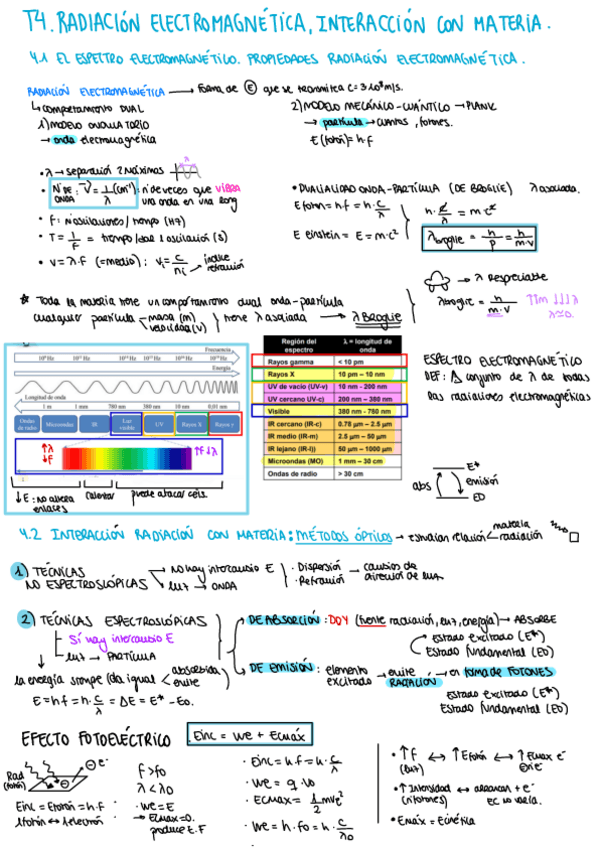 T4. RADIACIÓN ELECTROMAGNÉTICA, INTERACCIÓN CON MATERIA.
4.1 EL ESPECTRO ELECTROMAGNÉTICO. PROPIEDADES RADIACIÓN ELECTROMAGNÉTICA.
RADIACIÓN ELECTROMAGNÉTICA → forma de E que se transmite a c=3·10⁸ m/s.
↳ comportamiento DUAL
1) MODELO ONDULATORIO
→ onda electromagnética
2) MODELO MECÁNICO-CUÁNTICO → PLANK
→ partícula → cuantos, fotones.
E (fotón) = h·f
• λ → separación 2 máximos
• Nº DE ONDA: ṽ = 1/λ (cm⁻¹): nº de veces que VIBRA una onda en una long
• f: nº oscilaciones / tiempo (Hz)
• T = 1/F = tiempo / dar 1 oscilación (s)
• v = λ·F (=medio); vᵢ = c/nᵢ → índice refracción
• DUALIDAD ONDA-PARTÍCULA (DE BROGLIE) λ asociada.
E fotón = h·f = h·c/λ
E einstein = E = m·c²
h·c/λ = m·c²
λbroglie = h/p = h/m·v
→ λ despreciable
λbroglie = h/m·v ↑↑m ↓↓↓λ
λ≃0.
* Toda la materia tiene un comportamiento dual onda-partícula
cualquier partícula - masa (m) velocidad (v) } tiene λ asociada → λ BROGLIE
Frecuencia
Energía
Longitud de onda
1 m 1 mm 780 nm 380 nm 10 nm 0,01 nm
Ondas de radio Microondas IR Luz visible UV Rayos X Rayos γ
↑λ ↓F
↑F ↓λ
↓E: no altera enlaces
calentar
puede atacar céls.
Región del espectro λ = longitud de onda
Rayos gamma < 10 pm
Rayos X 10 pm – 10 nm
UV de vacío (UV-v) 10 nm - 200 nm
UV cercano UV-c) 200 nm – 380 nm
Visible 380 nm - 780 nm
IR cercano (IR-c) 0.78 µm – 2.5 µm
IR medio (IR-m) 2.5 µm – 50 µm
IR lejano (IR-l)) 50 µm – 1000 µm
Microondas (MO) 1 mm – 30 cm
Ondas de radio > 30 cm
ESPECTRO ELECTROMAGNÉTICO
DEF: conjunto de λ de todas
las radiaciones electromagnéticas
abs
emisión
E*
E0
4.2 INTERACCIÓN RADIACIÓN CON MATERIA: MÉTODOS ÓPTICOS → estudian relación materia radiación
1) TÉCNICAS NO ESPECTROSCÓPICAS
→ NO hay intercambio E
→ luz → ONDA
· Dispersión
· Refracción
→ cambios de dirección de luz.
2) TÉCNICAS ESPECTROSCÓPICAS
Sí hay intercambio E
luz → PARTÍCULA
la energía siempre (da igual absorbida emite
E = h·f = h·c/λ = ΔE = E* - E0.
• DE ABSORCIÓN: DOY (fuente radiación, luz, energía) → ABSORBE
Estado excitado (E*)
Estado fundamental (E0)
• DE EMISIÓN: elemento excitado → emite RADIACIÓN → en forma de FOTONES
Estado excitado (E*)
Estado fundamental (E0)
EFECTO FOTOELÉCTRICO
Einc = We + Ecmáx
Rad (fotón)
e⁻
Einc = Efotón = h·f
1 fotón ↔ 1 electrón
f > f0
λ < λ0
· We = E
→ Ecmax=0.
produce E.F
· Einc = h·f = h·c/λ
· We = q·V0
· Ecmax = 1/2 mve²
· We = h·f0 = h·c/λ0
• ↑F (luz) ↔ ↑Efotón ↔ ↑Ecmax e⁻
• ↑Intensidad (nº fotones) ↔ arrancan + e⁻
Ec no varía.
• Emáx = Ecinética